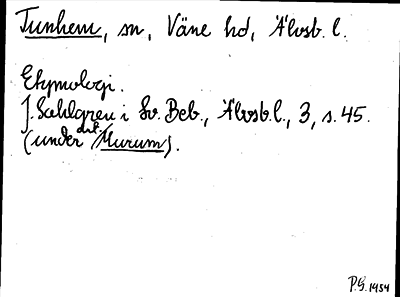 Tunhem, sn, Väne hd, Älvsb. l.
Etymologi.
J. Sahlgren i Sv. Beb., Älvsb. l., 3, s. 45.
(under art. Murum).
P.G. 1954